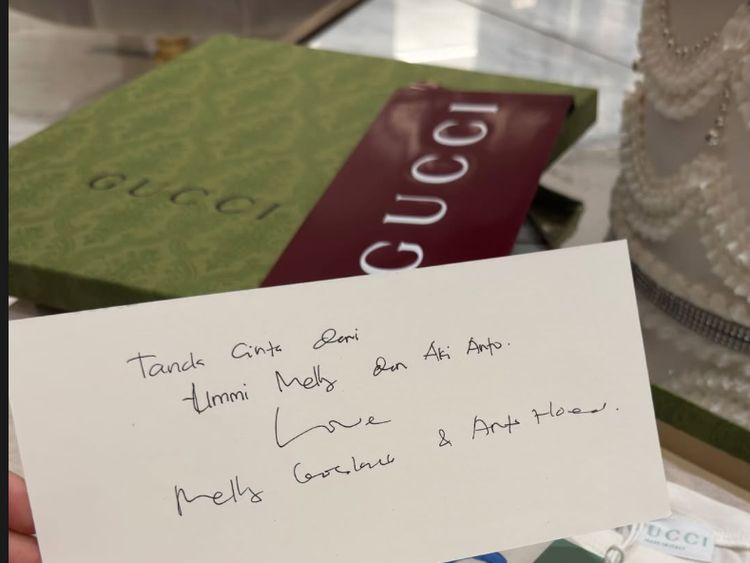 GUCCI
GUCCI
Tanda Cinta dari
Ummi Melly dan Aki Anto.
Love
Melly Goeslaw & Anto Hoed.
GUCCI
MADE IN ITALY